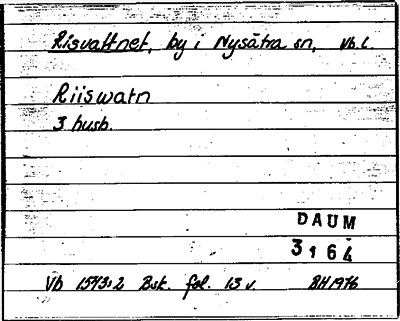 Risvattnet, by i Nysätra sn, Vb l.
Riiswatn
3 husb.
DAUM
3164
Vb 1543:2 Bsk. fol. 13 v. BH 1976